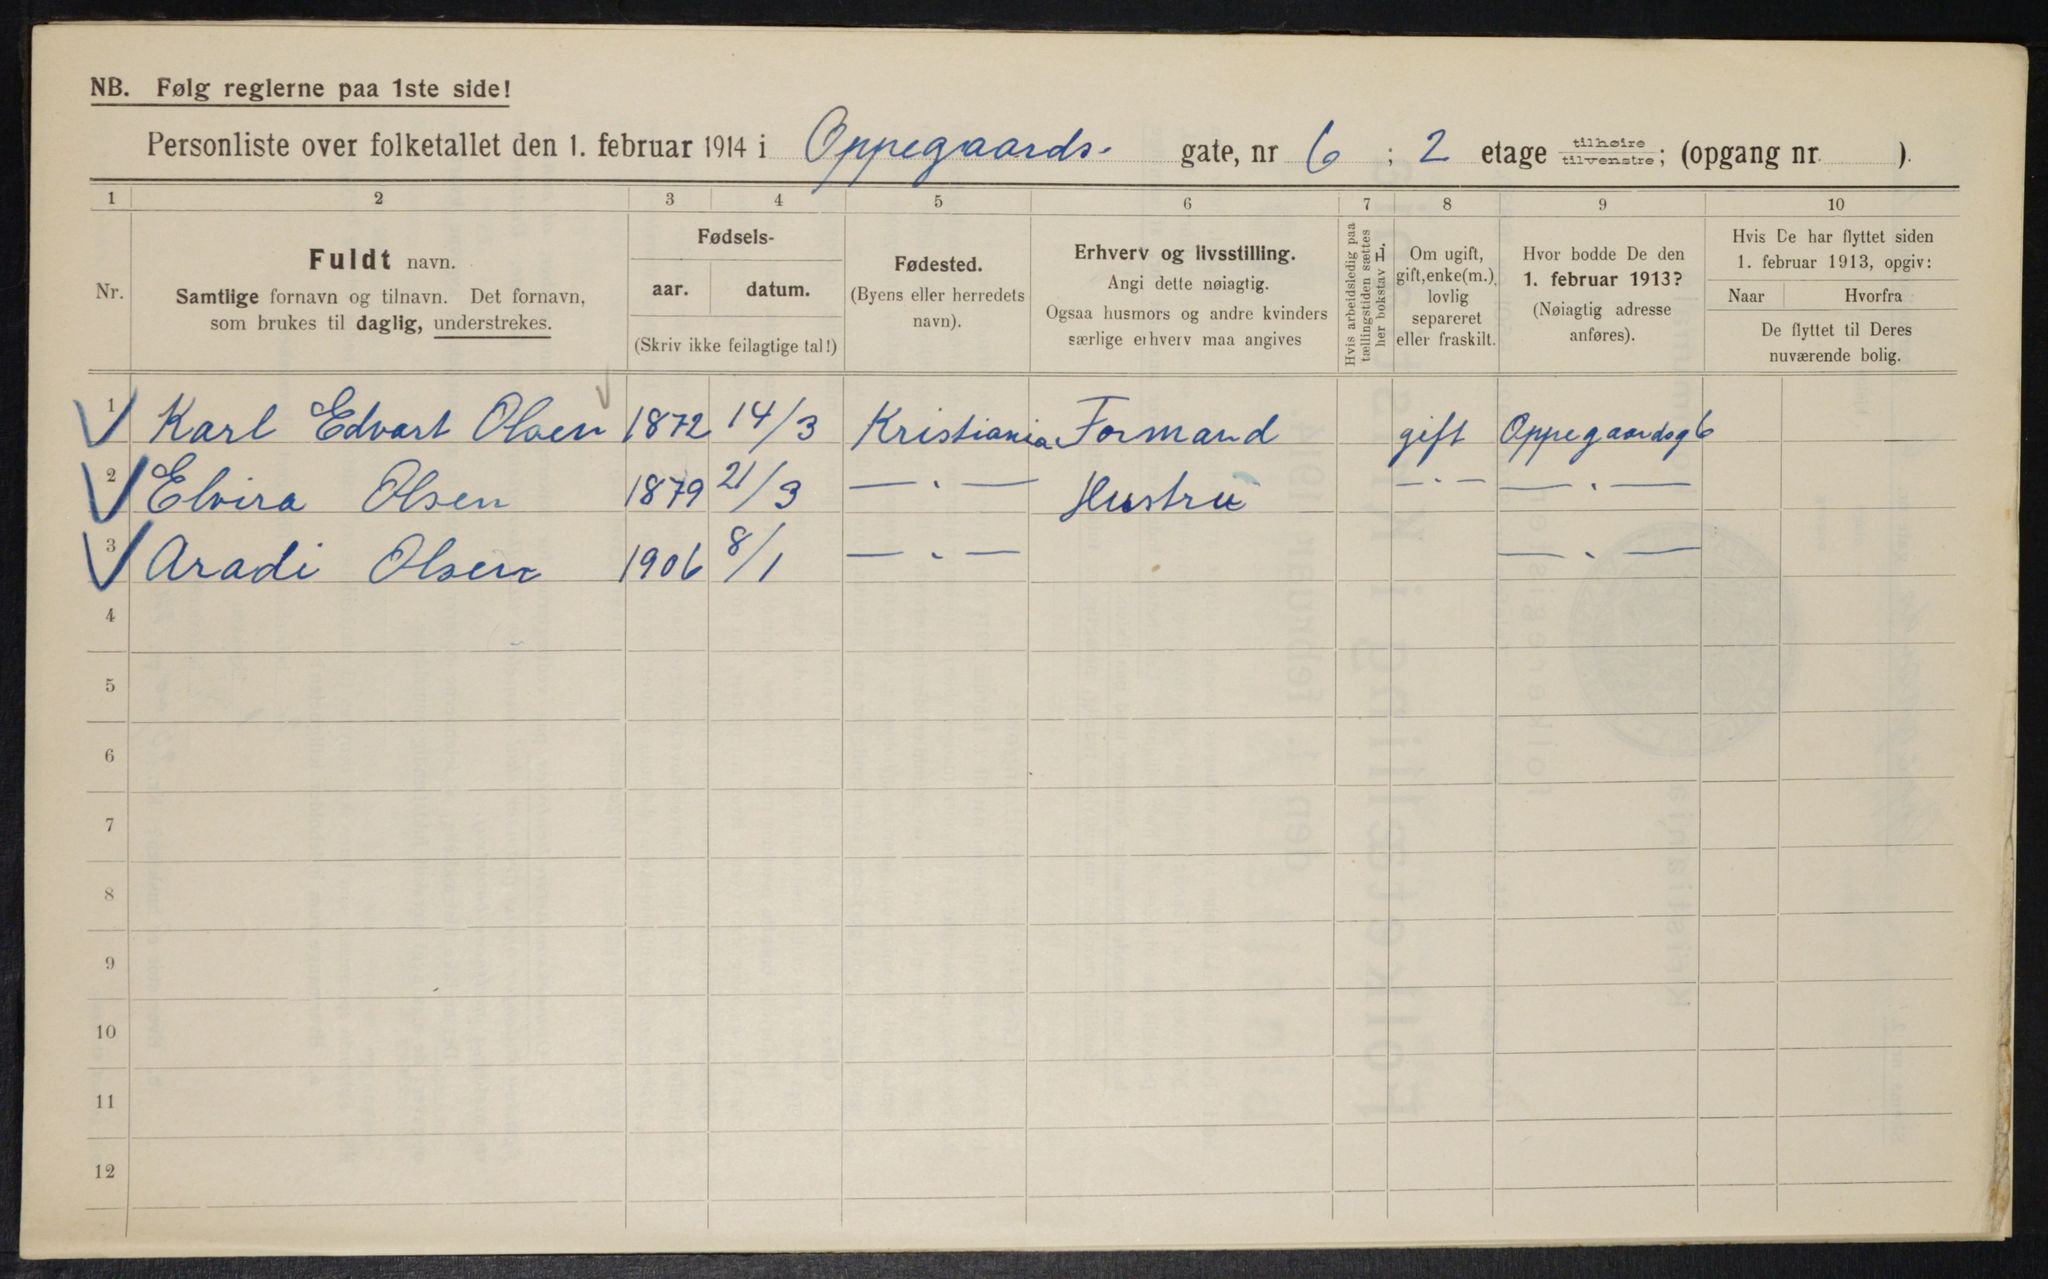 NB. Følg reglerne paa 1ste side!
Personliste over folketallet den 1. februar 1914 i Oppegaards- gate, nr 6 ; 2 etage tilhøire tilvenstre; (opgang nr. ).
1 2 3 4 5 6 7 8 9 10
Nr.
Fuldt navn.
Samtlige fornavn og tilnavn. Det fornavn,
som brukes til daglig, understrekes.
Fødsels-
aar. datum.
(Skriv ikke feilagtige tal!)
Fødested.
(Byens eller herredets
navn).
Erhverv og livsstilling.
Angi dette nøiagtig.
Ogsaa husmors og andre kvinders
særlige erhverv maa angives
Hvis arbeidsledig paa
tællingstiden sættes
her bokstav L.
Om ugift,
gift, enke(m.),
lovlig
separeret
eller fraskilt.
Hvor bodde De den
1. februar 1913?
(Nøiagtig adresse
anføres).
Hvis De har flyttet siden
1. februar 1913, opgiv:
Naar Hvorfra
De flyttet til Deres
nuværende bolig.
1 Karl Edvart Olsen 1872 14/3 Kristiania Formand gift Oppegaardsg 6
2 Elvira Olsen 1879 21/3 — „ — Hustru — „ — — „ —
3 Aradi Olsen 1906 8/1 — „ — — „ —
4
5
6
7
8
9
10
11
12